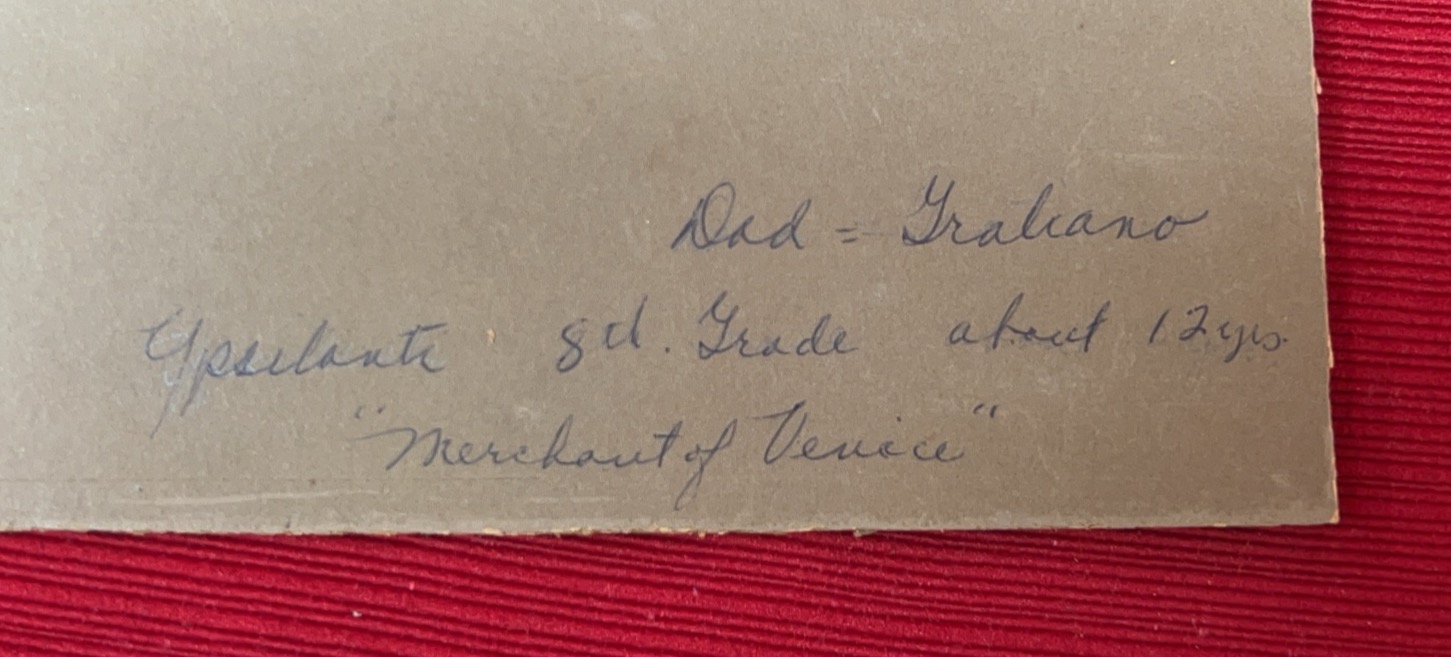 Dad = Gratiano
Ypsilanti 8th. Grade about 12 yrs.
"Merchant of Venice"